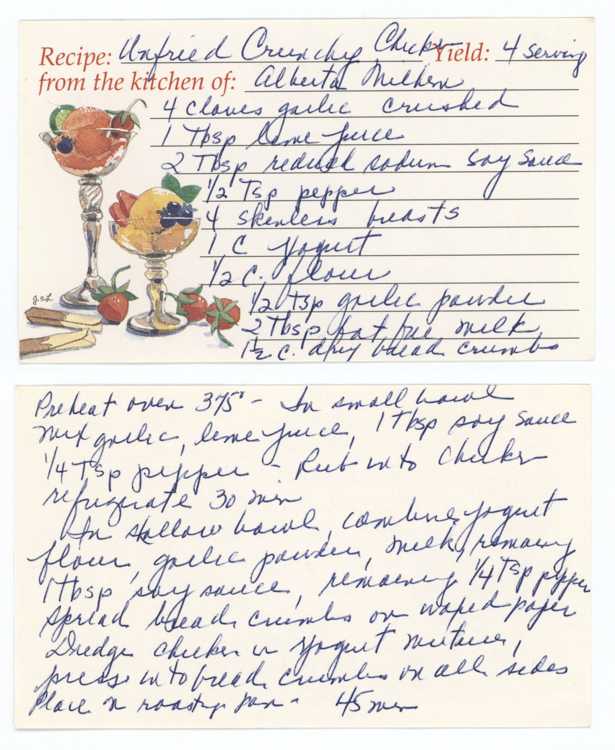 Recipe: Unfried Crunchy Chicken Yield: 4 serving
from the kitchen of: Alberta
4 cloves garlic crushed
1 Tbsp lime juice
2 Tbsp reduced sodium soy sauce
1/2 Tsp pepper
4 skinless breasts
1 C yogurt
1/2 C. flour
1/2 Tsp garlic powder
2 Tbsp fat free milk
1 1/2 C. dry bread crumbs
J.S.L.
Preheat oven 375° - In small bowl
mix garlic, lime juice, 1 Tbsp soy sauce
1/4 Tsp pepper - Rub into Chicken
refrigerate 30 min
In shallow bowl, combine yogurt
flour, garlic powder, milk, remaining
1 Tbsp soy sauce, remaining 1/4 Tsp pepper
spread bread crumbs on waxed paper
Dredge chicken in yogurt mixture,
press into bread crumbs on all sides
Place in roasting pan - 45 min